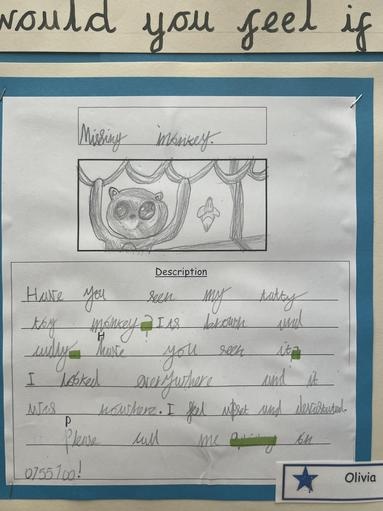 would you feel if
Missing monkey.
Description
Have you seen my
toy monkey? I is brown and
H
have you seen it?
I looked everywhere and it
was nowhere. I feel upset and devastated.
P
Please call me on
0755100!
Olivia